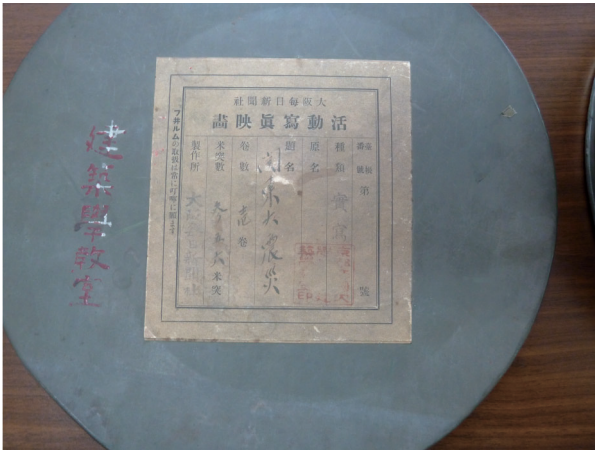 大阪毎日新聞社
活動寫眞映畵
臺帳番號 第 號
種類 實寫
原名
題名 關東大震災
卷數 壱卷
米突數 米突
製作所 大阪毎日新聞社
フ井ルムの取扱は常に叮嚀に願ます
建築學教室